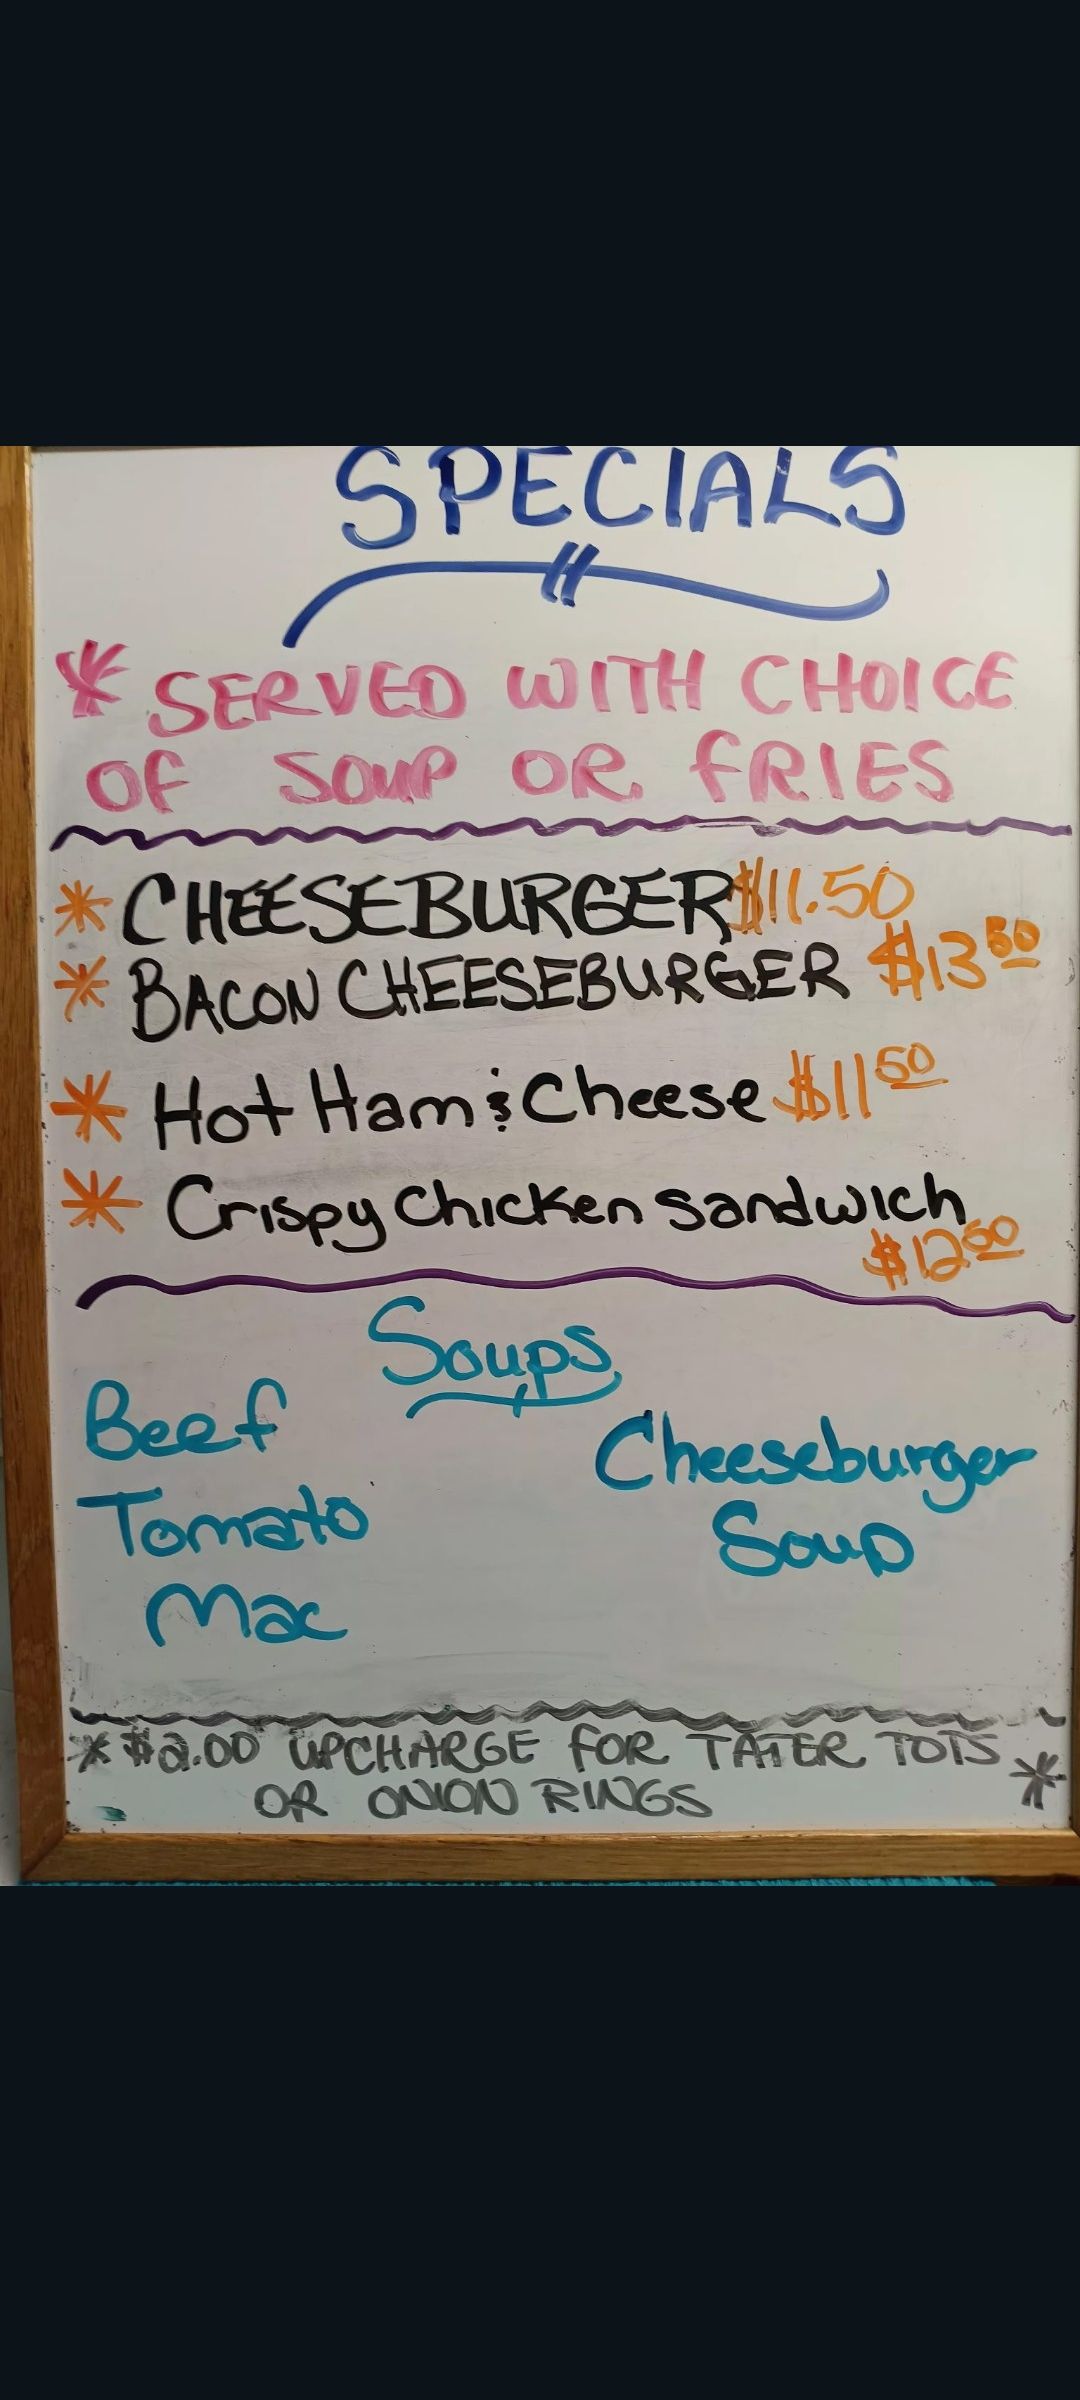 SPECIALS
* SERVED WITH CHOICE
OF SOUP OR FRIES
* CHEESEBURGER $11.50
* BACON CHEESEBURGER $13.50
* Hot Ham & Cheese $11.50
* Crispy Chicken Sandwich
$12.50
Soups
Beef
Tomato
Mac
Cheeseburger
Soup
* $2.00 UPCHARGE FOR TATER TOTS
OR ONION RINGS *